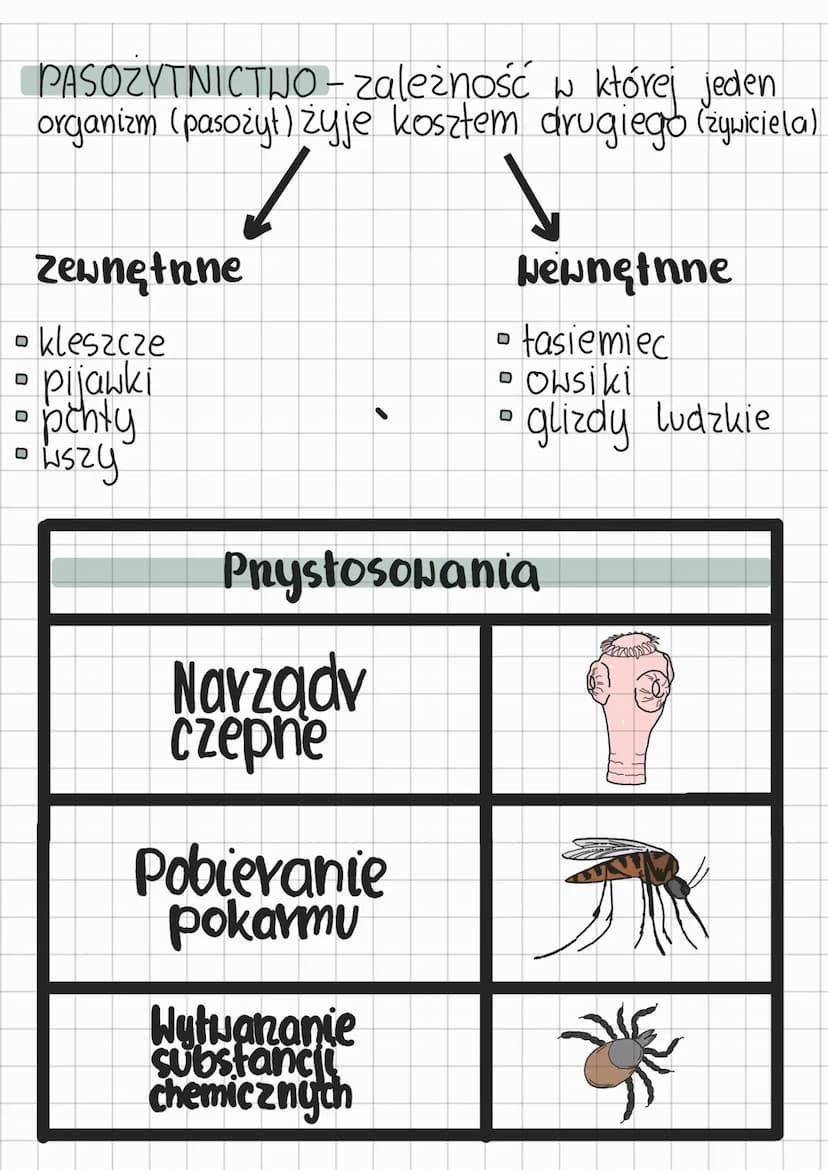 PASOŻYTNICTWO - zależność w której jeden
organizm (pasożyt) żyje kosztem drugiego (żywiciela)
Zewnętrzne
▫ kleszcze
▫ pijawki
▫ pchły
▫ wszy
Wewnętrzne
▫ tasiemiec
▫ owsiki
▫ glizdy ludzkie
Przystosowania
Narządy
czepne
Pobieranie
pokarmu
Wytwarzanie
substancji
chemicznych